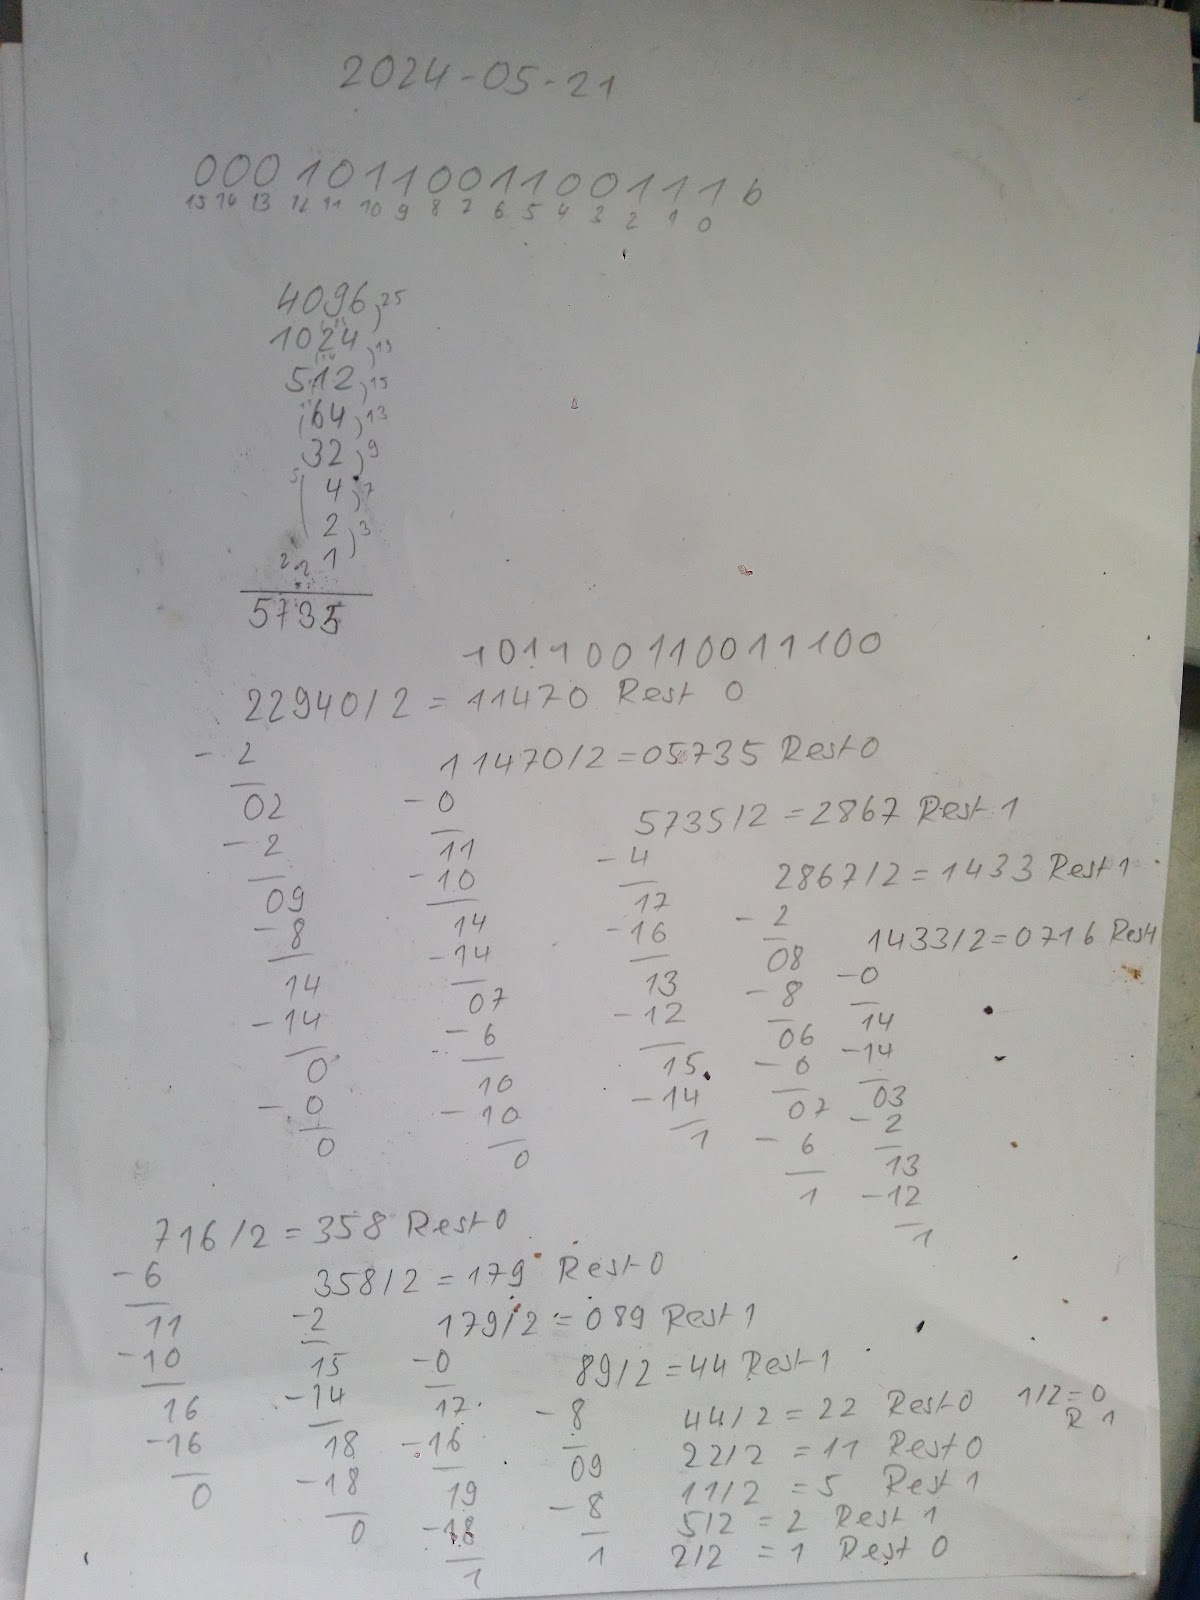 2024-05-21
0001011001100111 b
15 14 13 12 11 10 9 8 7 6 5 4 3 2 1 0
4096 25
1024 19
512 15
64 13
32 9
5 4 7
2 3
2 2 1
5735
101100110011100
22940/2 = 11470 Rest 0
- 2
02
- 2
09
- 8
14
- 14
0
- 0
0
11470/2 = 05735 Rest 0
- 0
11
- 10
14
- 14
07
- 6
10
- 10
0
5735/2 = 2867 Rest 1
- 4
17
- 16
13
- 12
15
- 14
1
2867/2 = 1433 Rest 1
- 2
08
- 8
06
- 6
07
- 6
1
1433/2 = 0716 Rest 1
- 0
14
- 14
03
- 2
13
- 12
1
716/2 = 358 Rest 0
- 6
11
- 10
16
- 16
0
358/2 = 179 Rest 0
- 2
15
- 14
18
- 18
0
179/2 = 089 Rest 1
- 0
17
- 16
19
- 18
1
89/2 = 44 Rest 1
- 8
09
- 8
1
44/2 = 22 Rest 0
22/2 = 11 Rest 0
11/2 = 5 Rest 1
5/2 = 2 Rest 1
2/2 = 1 Rest 0
1/2 = 0
R 1